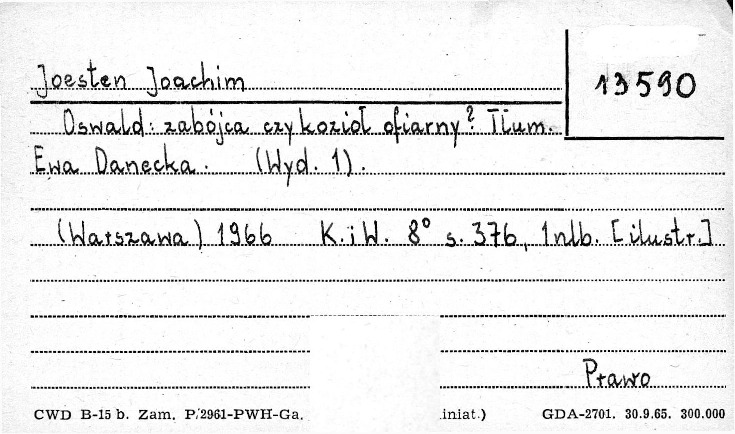 Joesten Joachim
13590
Oswald: zabójca czy kozioł ofiarny? Tłum.
Ewa Danecka. (Wyd. 1).
(Warszawa) 1966 K.iW. 8° s. 376, 1nlb. [ilustr.]
Prawo
CWD B-15 b. Zam. P/2961-PWH-Ga. .iniat.) GDA-2701. 30.9.65. 300.000